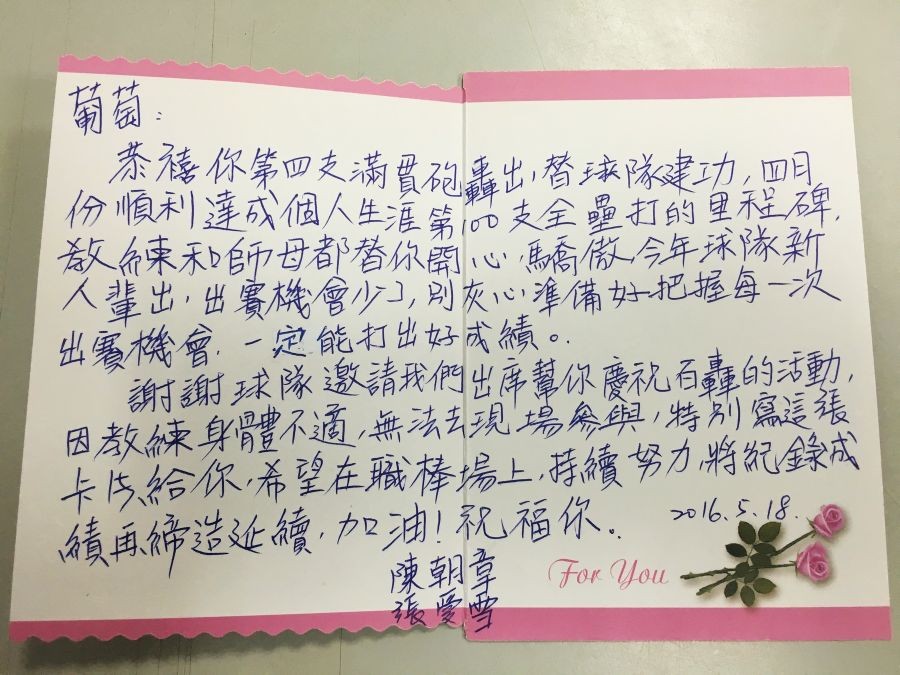 葡萄:
恭禧你第四支滿貫砲轟出,替球隊建功,四月
份順利達成個人生涯第100支全壘打的里程碑,
教練和師母都替你開心、驕傲,今年球隊新
人輩出,出賽機會少了,別灰心準備好把握每一次
出賽機會,一定能打出好成績。
謝謝球隊邀請我們出席幫你慶祝百轟的活動,
因教練身體不適,無法去現場參與,特別寫這張
卡片給你,希望在職棒場上,持續努力,將紀錄成
績再締造延續,加油!祝福你。
2016.5.18.
陳朝章
張愛雪
For You